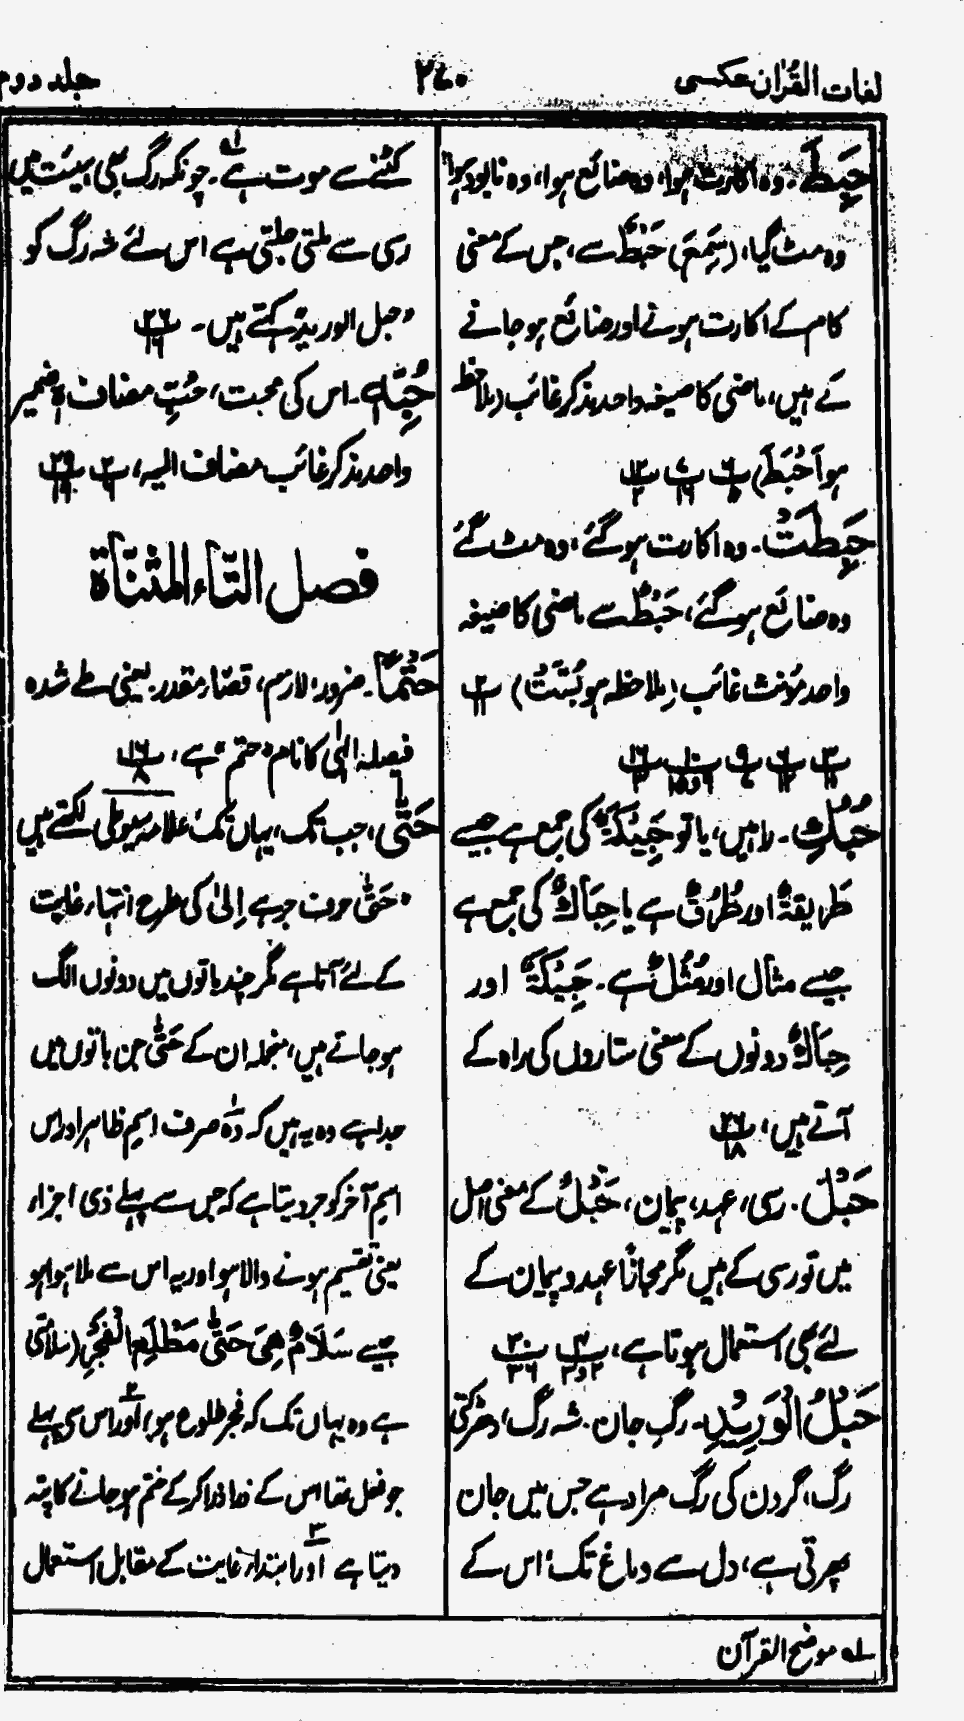 لغات القرآن عکسی
۲۷۰
جلد دوم
حَبِطَ۔ وہ اکارت ہوا، وہ ضائع ہوا، وہ نابود ہوا
وہ مٹ گیا، (سَمِعَ) حَبْطٌ سے، جس کے معنی
کام کے اکارت ہونے اور ضائع ہو جانے
کے ہیں، ماضی کا صیغہ واحد مذکر غائب (ملاحظہ
ہو اَحْبَطَ)
حَبِطَتْ۔ وہ اکارت ہو گئے، وہ مٹ گئے
وہ ضائع ہو گئے، حَبْطٌ سے ماضی کا صیغہ
واحد مؤنث غائب (ملاحظہ ہو
حُبُكِ۔ راہیں، یا تو حَبِیْكَةٌ کی جمع ہے جیسے
طَرِیقَةٌ اور طُرُقٌ ہے یا حِبَاكٌ کی جمع ہے
جیسے مثال اور مُثُلٌ ہے۔ حَبِیْكَةٌ اور
حِبَاكٌ دونوں کے معنی ستاروں کی راہ کے
آتے ہیں، پ۲۶ ۱۸
حَبْلٌ۔ رسی، عہد، پیمان، حَبْلٌ کے معنی اصل
میں تو رسی کے ہیں مگر مجازًا عہد و پیمان کے
لئے بھی استعمال ہوتا ہے،
حَبْلُ الْوَرِیْدِ۔ رگِ جان۔ شہ رگ، دھڑکتی
رگ، گردن کی رگ مراد ہے جس میں جان
پھرتی ہے، دل سے دماغ تک، اس کے
کٹنے سے موت ہے لہ۔ چونکہ رگ بھی ہیئت میں
رسی سے ملتی جلتی ہے اس لئے شہ رگ کو
"حبل الورید" کہتے ہیں۔ پ۲۶ ۱۶
حُبِّهٖ۔ اس کی محبت، حُبِّ مضاف ہٖ ضمیر
واحد مذکر غائب مضاف الیہ،
فصل التّاء المثنّاة
حَتْمًا۔ ضرور، لازم، قضاء مقدر یعنی طے شدہ
فیصلۂ الہٰی کا نام "حتم" ہے، پ۱۶ ۸
حَتّٰی، جب تک، یہاں تک، علامہ سیوطی لکھتے ہیں
"حَتّٰی حرف جر ہے اِلیٰ کی طرح انتہاء غایت
کے لئے آتا ہے مگر چند باتوں میں دونوں الگ
ہو جاتے ہیں، منجملہ ان کے حَتّٰی جن باتوں میں
جدا ہے وہ یہ ہیں کہ وہ صرف اسم ظاہر اور اس
اسمِ آخر کو جر دیتا ہے کہ جس سے پہلے ذی اجزاء
یعنی تقسیم ہونے والا ہو اور یہ اس سے ملا ہوا ہو
جیسے سَلَامٌ هِیَ حَتّٰی مَطْلَعِ الْفَجْرِ (سلامتی
ہے وہ یہاں تک کہ فجر طلوع ہو)، ۲ اور اس سے پہلے
جو فعل تھا اس کے ذرا ذرا کر کے ختم ہو جانے کا پتہ
دیتا ہے ۳ اور ابتداء غایت کے مقابل استعمال
لہ موضح القرآن